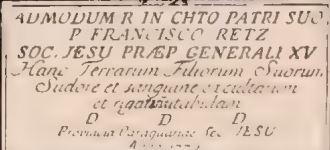 ADMODUM R IN CHTO PATRI SUO
P FRANCISCO RETZ
SOC. JESU PRÆP GENERALI XV
Hanc Terrarum Filiorum Suorum
Sudore et sanguine excultarum
et rigatarum tabulam
D D D
Provincia Paraquariæ Soc JESU